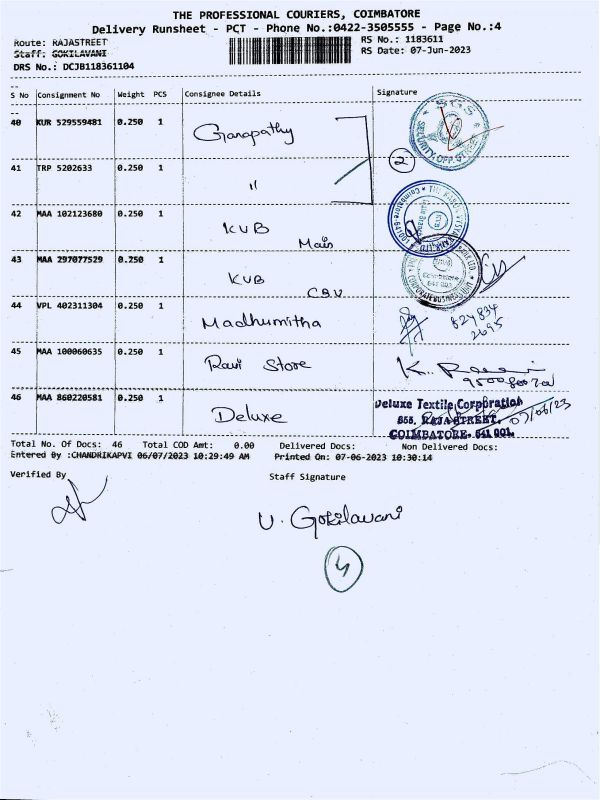 THE PROFESSIONAL COURIERS, COIMBATORE
Delivery Runsheet - PCT - Phone No.:0422-3505555 - Page No.:4
Route: RAJASTREET
RS No.: 1183611
Staff: GOKILAVANI
RS Date: 07-Jun-2023
DRS No.: DCJB118361104
S No Consignment No Weight PCS Consignee Details Signature
40 KUR 529559481 0.250 1 Ganapathy
SGS SECURITY OFF
41 TRP 5202633 0.250 1 "
2
42 MAA 102123680 0.250 1 KVB Main
43 MAA 297077529 0.250 1 KVB CBV
44 VPL 402311304 0.250 1 Madhumitha
824834
2695
45 MAA 100060635 0.250 1 Ravi Store
46 MAA 860220581 0.250 1 Deluxe
Deluxe Textile Corporation
855, RAJA STREET,
COIMBATORE-641 001.
07/06/23
Total No. Of Docs: 46 Total COD Amt: 0.00 Delivered Docs: Non Delivered Docs:
Entered By :CHANDRIKAPVI 06/07/2023 10:29:49 AM Printed On: 07-06-2023 10:30:14
Verified By Staff Signature
V. Gokilavani
4